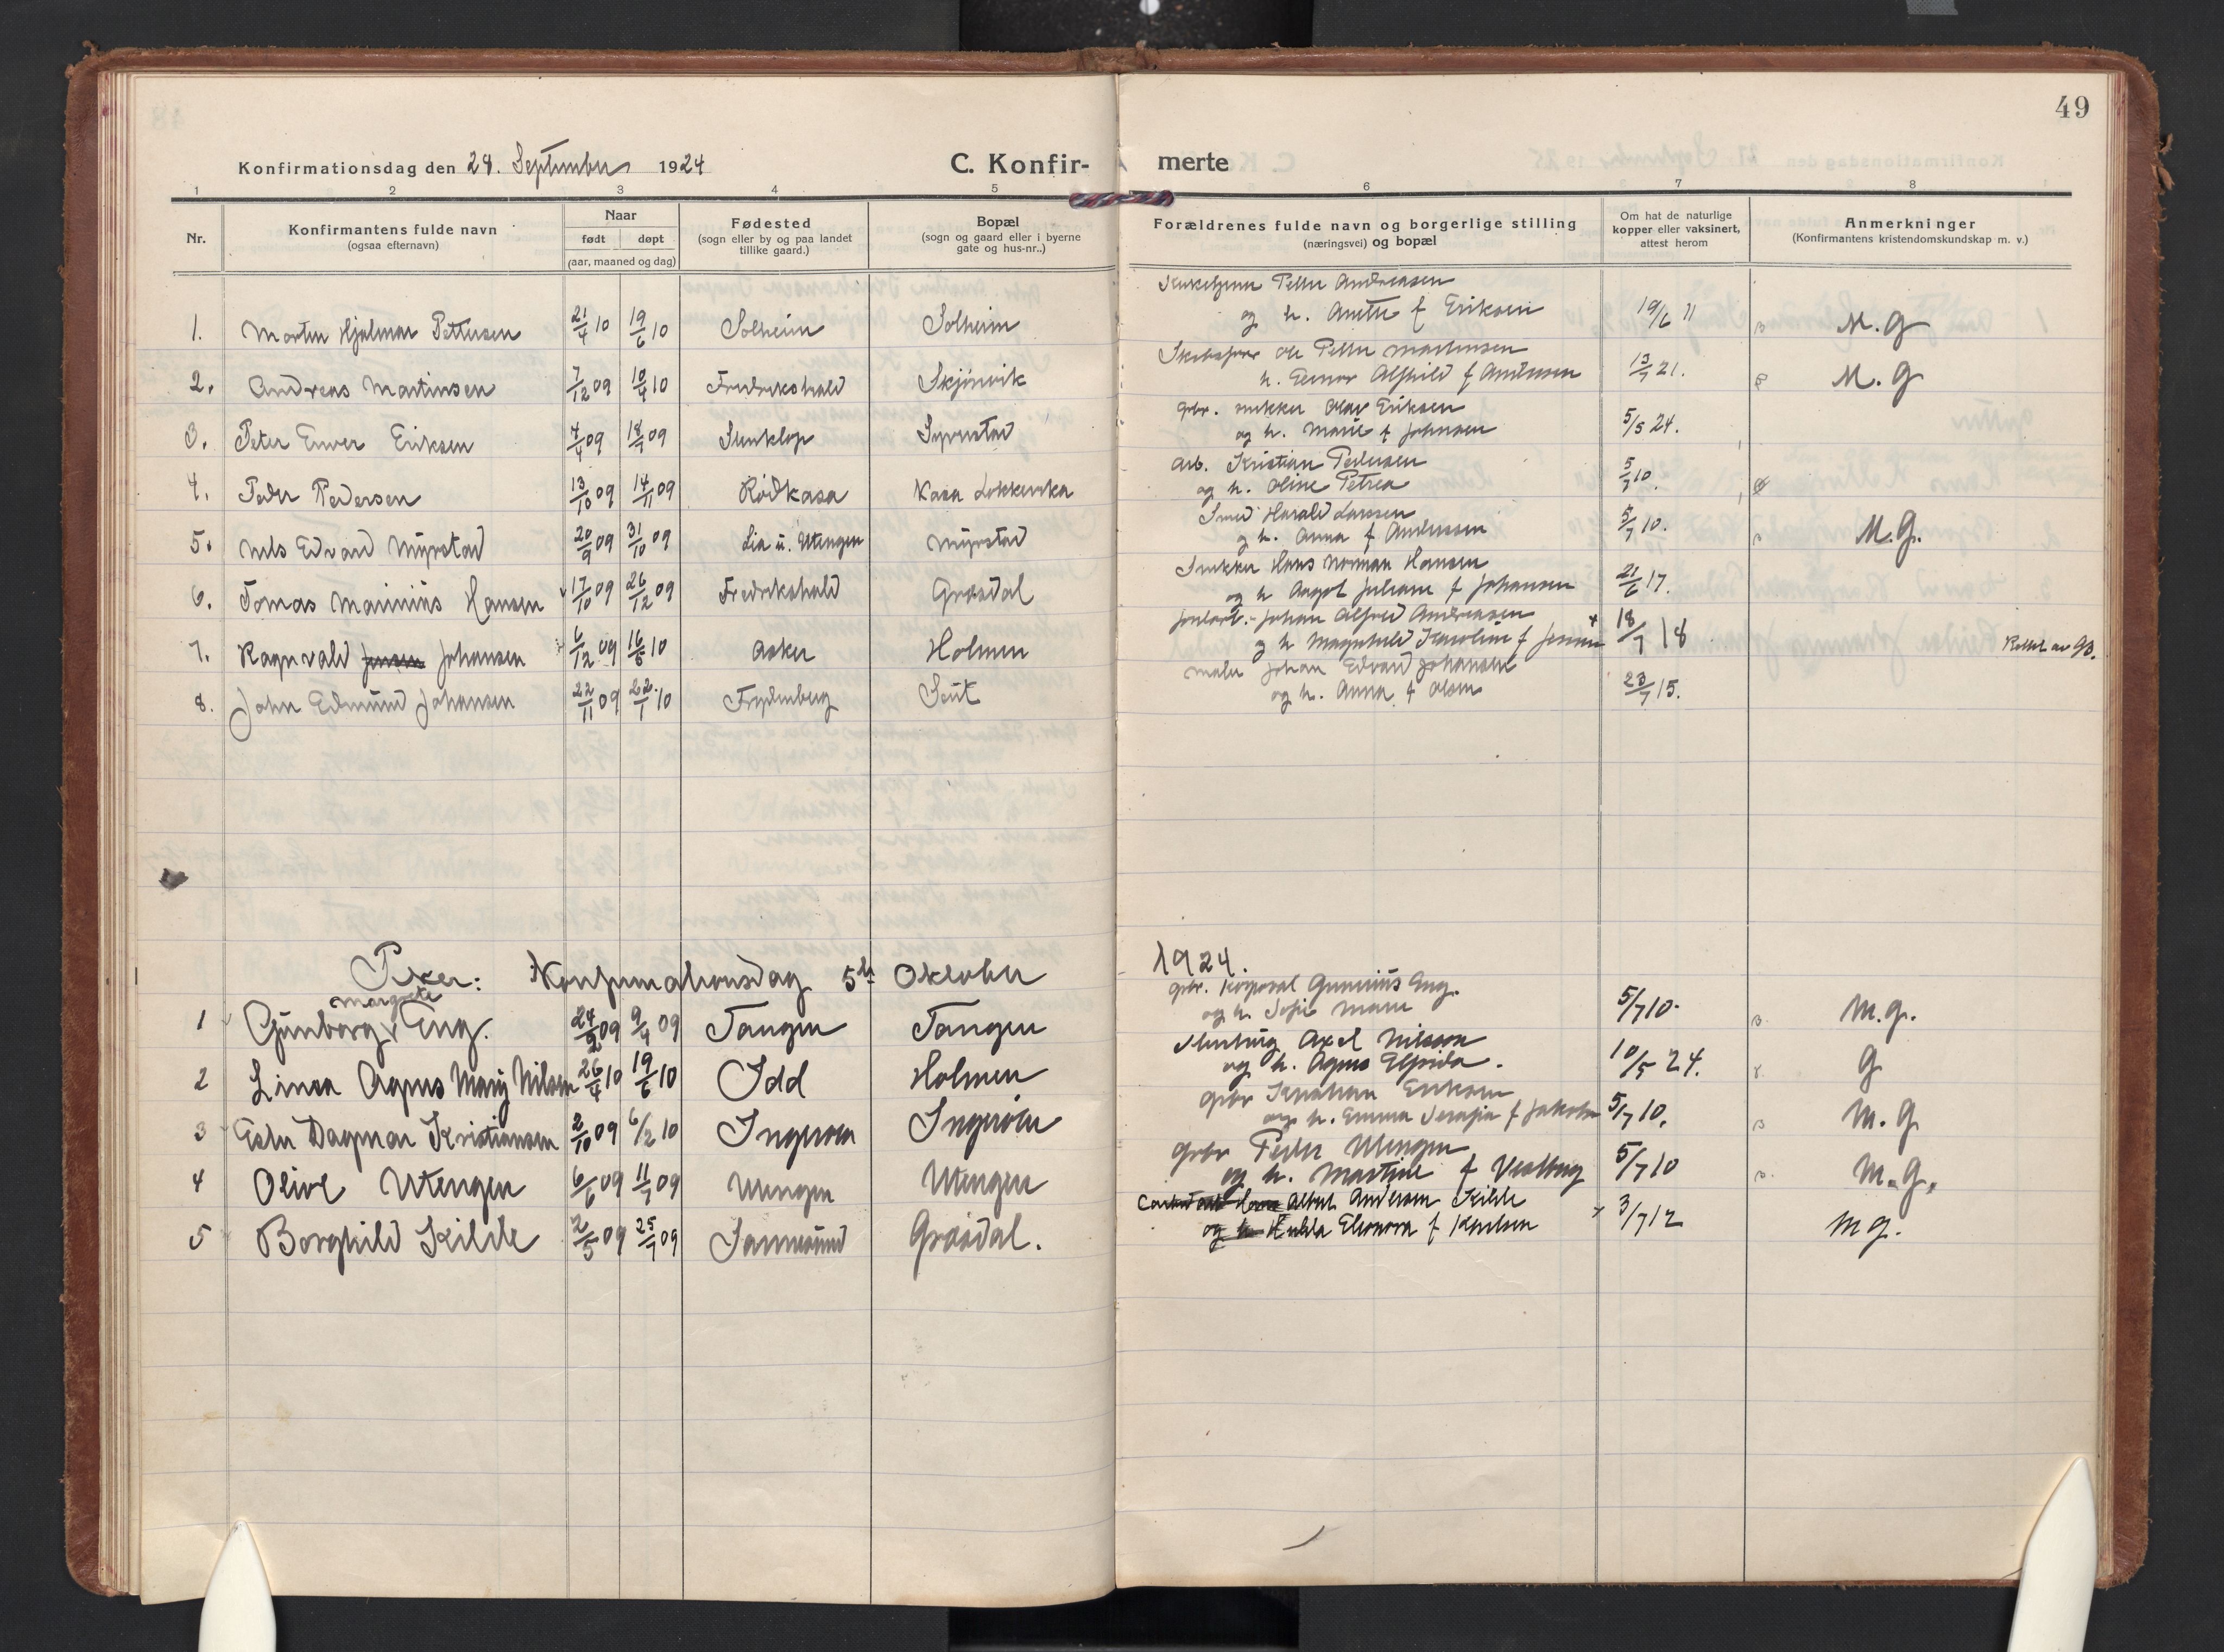 49
Konfirmationsdag den 28. September 1924
C. Konfir-
merte
1 2 3 4 5 6 7 8
Nr.
Konfirmantens fulde navn
(ogsaa efternavn)
Naar
født døpt
(aar, maaned og dag)
Fødested
(sogn eller by og paa landet
tillike gaard.)
Bopæl
(sogn og gaard eller i byerne
gate og hus-nr..)
Forældrenes fulde navn og borgerlige stilling
(næringsvei) og bopæl
Om hat de naturlige
kopper eller vaksinert,
attest herom
Anmerkninger
(Konfirmantens kristendomskundskap m. v.)
Petter Andreasen
1. Morten Hjalmar Pettersen 21/4 10 19/6 10 Solheim Solheim og h. Anette f Eriksen 19/6 11 M. G
Ole Petter Martinsen
2. Andreas Martinsen 7/12 09 10/4 10 Fredrikshald Skjönvik h. Alfhild f Andersen 13/7 21. M. G
Gbr. snekker Olav Eriksen
3. Peter Enver Eriksen 4/4 09 18/7 09 og h. Marie f Johnsen 5/5 24.
Arb. Kristian Pedersen
4. Peder Pedersen 13/10 09 14/11 09 Rödkasa Kasa og h. Oline Petrea 5/7 10.
Smed Harald Larssen
5. Nils Edvard Myrstad 20/9 09 31/10 09 Lia u. Utengen Myrstad og h. Anna f Anderssen 5/7 10. M. G.
Snekker Hans Norman Hansen
6. Tomas Marinius Hansen 17/10 09 26/12 09 Fredrikshald Grasdal og h Aagot Juliane f Johansen 21/6 17.
Johan Alfred Andreasen
7. Ragnvald Jensen Johansen 6/12 09 16/5 10 Asker Holmen og h Magnhild Karoline f Jensen 18/7 18 Rettet av GB.
maler Johan Edvard Johansen
8. John Edmund Johansen 22/11 09 22/1 10 Frydenberg og h. Anna f Olsen 23/7 15.
Piker: Konfirmationsdag 5te Oktober
1924.
Margrete
Gbr. Korporal Gunerius Eng.
1 Gunborg Eng. 24/2 09 9/4 09 Tangen Tangen og h. Sofie Marie 5/7 10. M. G.
Axel Nilsson
2 Linea Agnes Mary Nilsen 26/4 10 19/6 10 Idd Holmen og h. Agnes Elfrida. 10/5 24. G
Gbr Kristian Eriksen
3 Ester Dagmar Kristiansen 2/10 09 6/2 10 Ingeröen Ingeröen og h. Emma Serafia f Jakobs 5/7 10. M. G
Gbr Peder Utengen
4 Olive Utengen 6/6 09 11/7 09 Utengen Utengen og h. Martine f Vestberg 5/7 10 M. G.
Albert Andersen Kilde
5 Borghild Kilde 2/5 09 25/7 09 Sannesund Grasdal. og h Hulda Eleonora f Karlsen 3/7 12 M G.